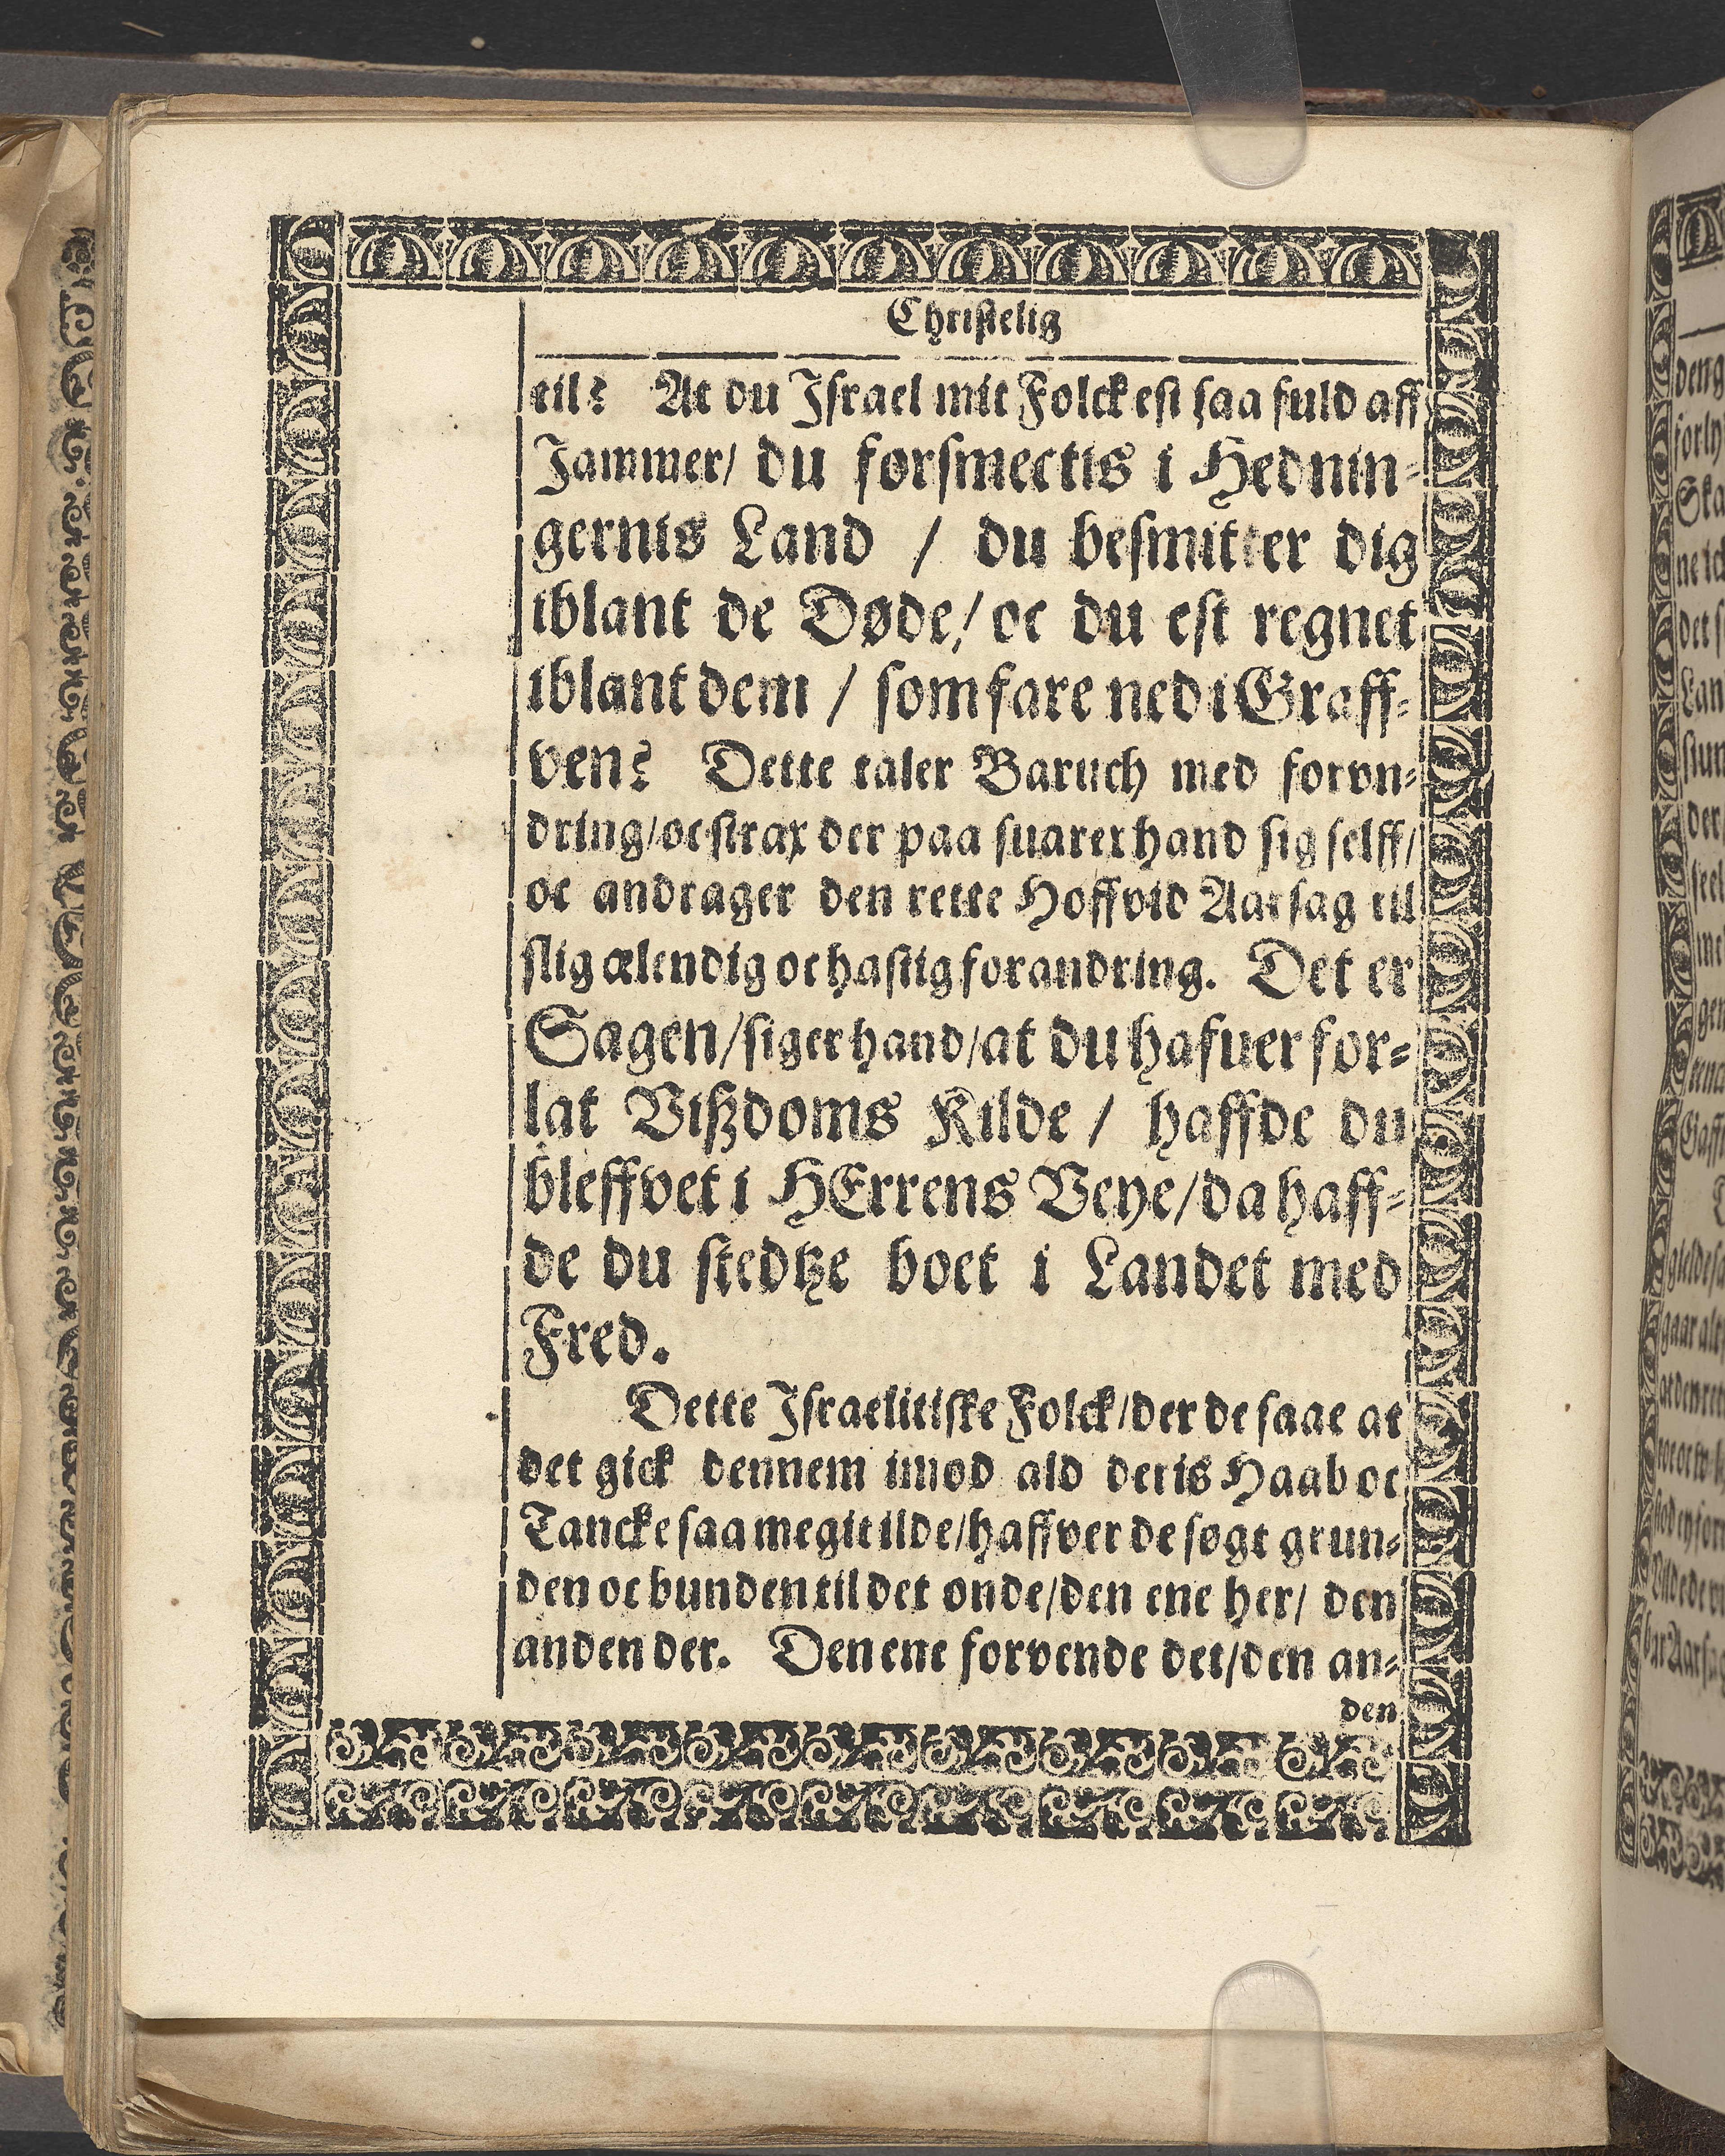 Christelig
til? At du Israel mit Folck est saa fuld aff
Jammer/ du forsmectis i Hednin-
gernis Land / du besmitter dig
iblant de Døde/ oc du est regnet
iblant dem / som fare ned i Graff-
ven? Dette taler Baruch med forvn-
dring/ oc strax der paa suarer hand sig selff/
oc andrager den rette Hoffvid Aarsag til
slig ælendig oc hastig forandring. Det er
Sagen/ siger hand/ at du hafuer for-
lat Vißdoms Kilde / haffde du
bleffvet i HErrens Veye/ da haff-
de du stedtze boet i Landet med
Fred.
Dette Israelitiske Folck/ der de saae at
det gick dennem imod ald deris Haab oc
Tancke saa megit ilde/ haffver de søgt grun-
den oc bunden til det onde/ den ene her/ den
anden der. Den ene forvende det/ den an-
den